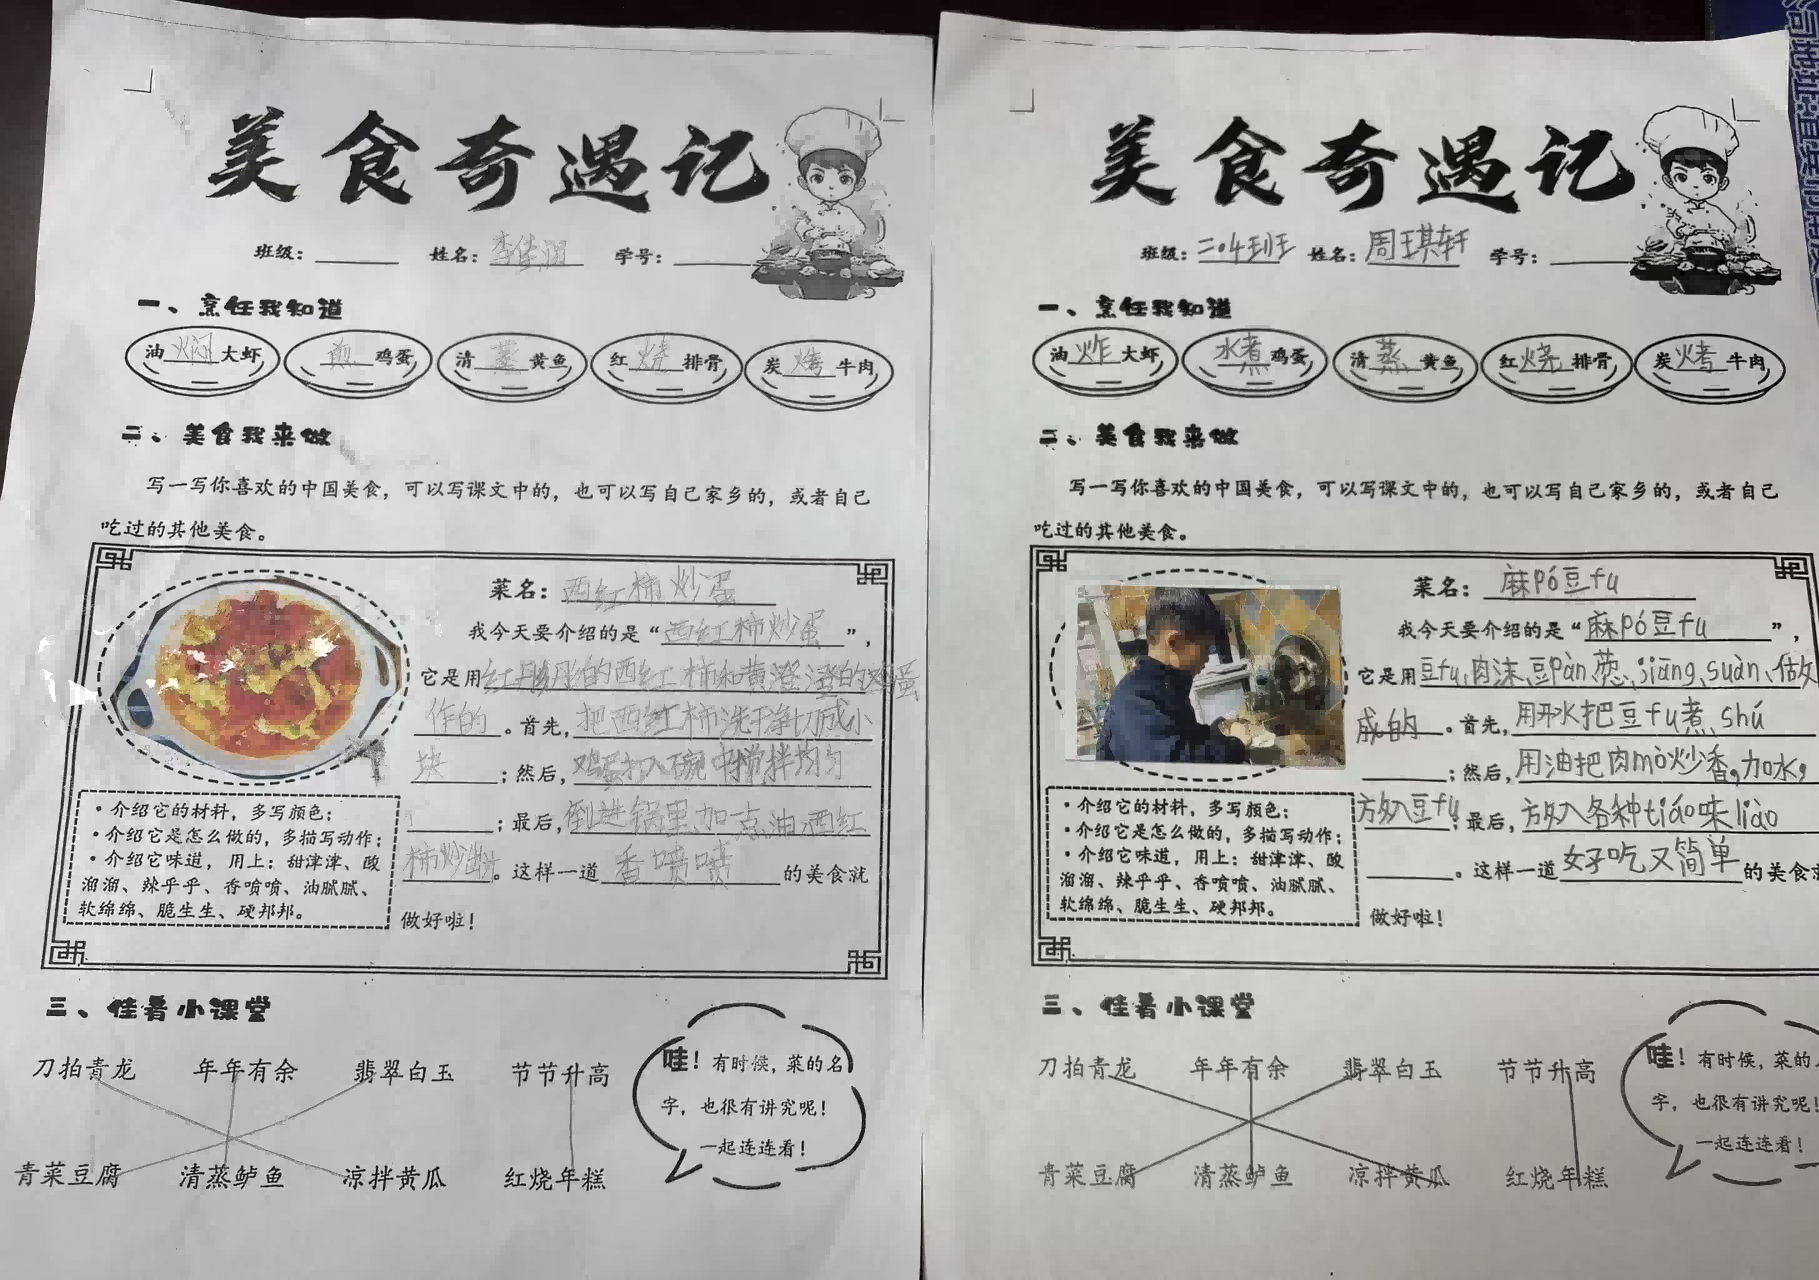 美食奇遇记
班级：　姓名：李佳润　学号：
一、烹饪我知道
油焖大虾　煎鸡蛋　清蒸黄鱼　红烧排骨　炭烤牛肉
二、美食我来做
写一写你喜欢的中国美食，可以写课文中的，也可以写自己家乡的，或者自己
吃过的其他美食。
菜名：西红柿炒蛋
我今天要介绍的是“西红柿炒蛋”，
它是用红彤彤的西红柿和黄澄澄的鸡蛋
作的。首先，把西红柿洗干净切成小
块；然后，鸡蛋打入碗中搅拌均匀
；最后，倒进锅里加点油西红
柿炒出汁。这样一道香喷喷的美食就
做好啦！
·介绍它的材料，多写颜色；
·介绍它是怎么做的，多描写动作；
·介绍它味道，用上：甜津津、酸
溜溜、辣乎乎、香喷喷、油腻腻、
软绵绵、脆生生、硬邦邦。
三、佳肴小课堂
刀拍青龙　年年有余　翡翠白玉　节节升高
青菜豆腐　清蒸鲈鱼　凉拌黄瓜　红烧年糕
哇！有时候，菜的名
字，也很有讲究呢！
一起连连看！
美食奇遇记
班级：二.4班　姓名：周琪轩　学号：
一、烹饪我知道
油炸大虾　水煮鸡蛋　清蒸黄鱼　红烧排骨　炭烤牛肉
二、美食我来做
写一写你喜欢的中国美食，可以写课文中的，也可以写自己家乡的，或者自己
吃过的其他美食。
菜名：麻pó豆fu
我今天要介绍的是“麻pó豆fu”，
它是用豆fu、肉沫、豆pàn、葱、jiāng、suàn、做
成的。首先，用开水把豆fu煮shú
；然后，用油把肉mò炒香，加水，
放入豆fu；最后，放入各种tiáo味liào
。这样一道好吃又简单的美食就
做好啦！
·介绍它的材料，多写颜色；
·介绍它是怎么做的，多描写动作；
·介绍它味道，用上：甜津津、酸
溜溜、辣乎乎、香喷喷、油腻腻、
软绵绵、脆生生、硬邦邦。
三、佳肴小课堂
刀拍青龙　年年有余　翡翠白玉　节节升高
青菜豆腐　清蒸鲈鱼　凉拌黄瓜　红烧年糕
哇！有时候，菜的
字，也很有讲究呢！
一起连连看！